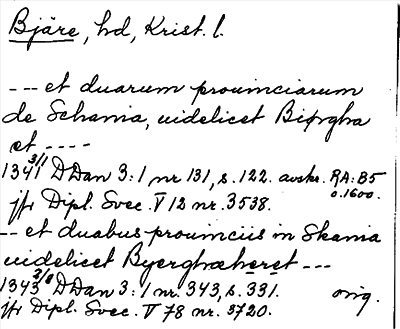 Bjäre, hd, Krist. l.
--- et duarum prouinciarum
de Schania, uidelicet Biærgha
et ----
1341 3/1 DDan 3:1 nr 131, s. 122. avskr. RA: B5
o. 1600.
jfr Dipl. Svec. V 12 nr. 3538.
-- et duabus prouinciis in Skania
uidelicet Byerghæheret ---
1343 2/8 DDan 3:1 nr. 343, s. 331. orig.
jfr Dipl. Svec. V 78 nr. 3720.